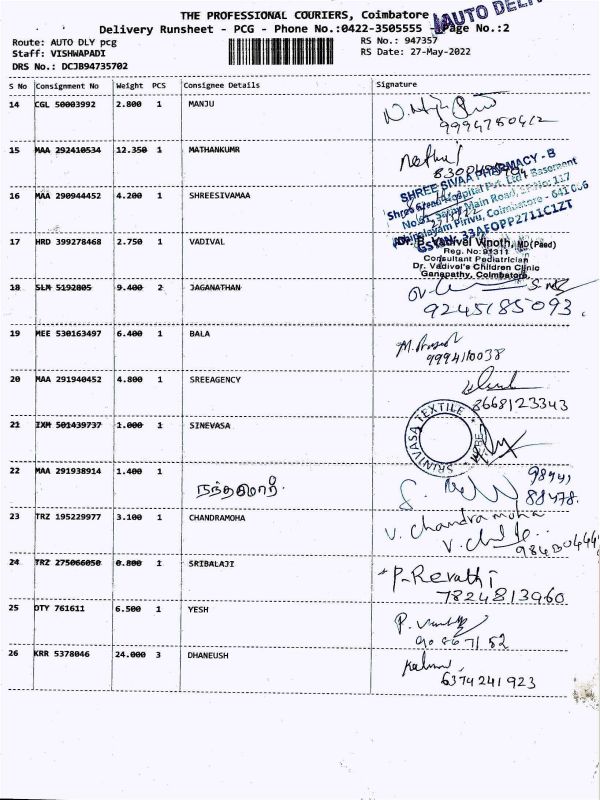 THE PROFESSIONAL COURIERS, Coimbatore
AUTO DELI
Delivery Runsheet - PCG - Phone No.:0422-3505555 Page No.:2
Route: AUTO DLY pcg RS No.: 947357
Staff: VISHWAPADI RS Date: 27-May-2022
DRS No.: DCJB94735702
S No Consignment No Weight PCS Consignee Details Signature
14 CGL 50003992 2.800 1 MANJU
15 MAA 292410534 12.350 1 MATHANKUMR
SHREE SIVAA PHARMACY - B
16 MAA 290944452 4.200 1 SHREESIVAMAA
17 HRD 399278468 2.750 1 VADIVAL
Vadivel Vinoth, MD(Paed)
Reg. No: 91311
Consultant Pediatrician
Dr. Vadivel's Children Clinic
Ganapathy, Coimbatore
18 SLM 5192805 9.400 2 JAGANATHAN
9245185093
19 MEE 530163497 6.400 1 BALA
9994110038
20 MAA 291940452 4.800 1 SREEAGENCY
8668123343
21 IXM 501439737 1.000 1 SINEVASA
SRINIVASA TEXTILE
22 MAA 291938914 1.400 1
நந்தகுமார்
23 TRZ 195229977 3.100 1 CHANDRAMOHA
V. Chandramoha
24 TRZ 275066050 0.800 1 SRIBALAJI
P-Revathi
7824813960
25 OTY 761611 6.500 1 YESH
26 KRR 5378046 24.000 3 DHANEUSH
6374241923